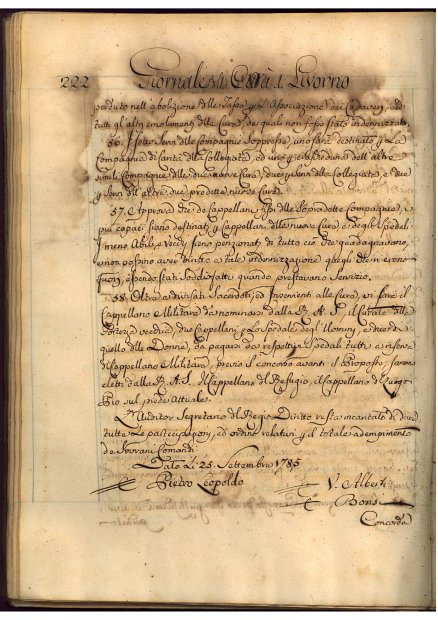 222 Giornale della Curia di Livorno
perduto nell'abolizione delle Tasse, q. l'Associazione dei Cadaveri, ed
tutti gl'altri emolumenti della Cura, de quali non fosse stato indennizzato.
56. I sotto Servi delle Compagnie Soppresse, uno sarà destinato q. La
Compagnia di Carità della Collegiata, ed uno q. ciascheduna dell'altre
simili Compagnie delle due nuove Cure, due q. servi della Collegiata, e due
q. servi dell'altre due predette nuove Cure.
57. Approva che de Cappellani delle Sopradette Compagnie, i
più capaci siano destinati q. Cappellani delle nuove Cure, e degli Spedali
I meno Abili, e Vecchi sieno penzionati di tutto ciò che guadagnavano,
e non possino aver diritto a tale indennizzazione quegli che
essendo stati Soddisfatti quando prestavano Servizio.
58. Oltre Sacerdoti, ed Inservienti alle Cure, vi sarà il
Cappellano Militare da nominarsi dalla R. A. S., il Curato delle
Fortezze vecchie, due Cappellani q. Lo Spedale degl'Uomini, ed uno q.
quello delle Donne, da pagarsi da respettivi Spedali, tutti a riserva
del Cappellano Militare, previo il concorso avanti il Proposto, saranno
eletti dalla R. A. S., il Cappellano del Refugio, il Cappellano di Luogo
Pio sul piede Attuale.
L'Auditor Segretario del Regio Diritto resta incaricato di dare
tutte Le partecipazioni, ed ordini relativi q. il totale adempimento
de Sovrani Comandi.
Dato Lì 25. Settembre 1785
Pietro Leopoldo V. Alberti
Bonsi
Concorda